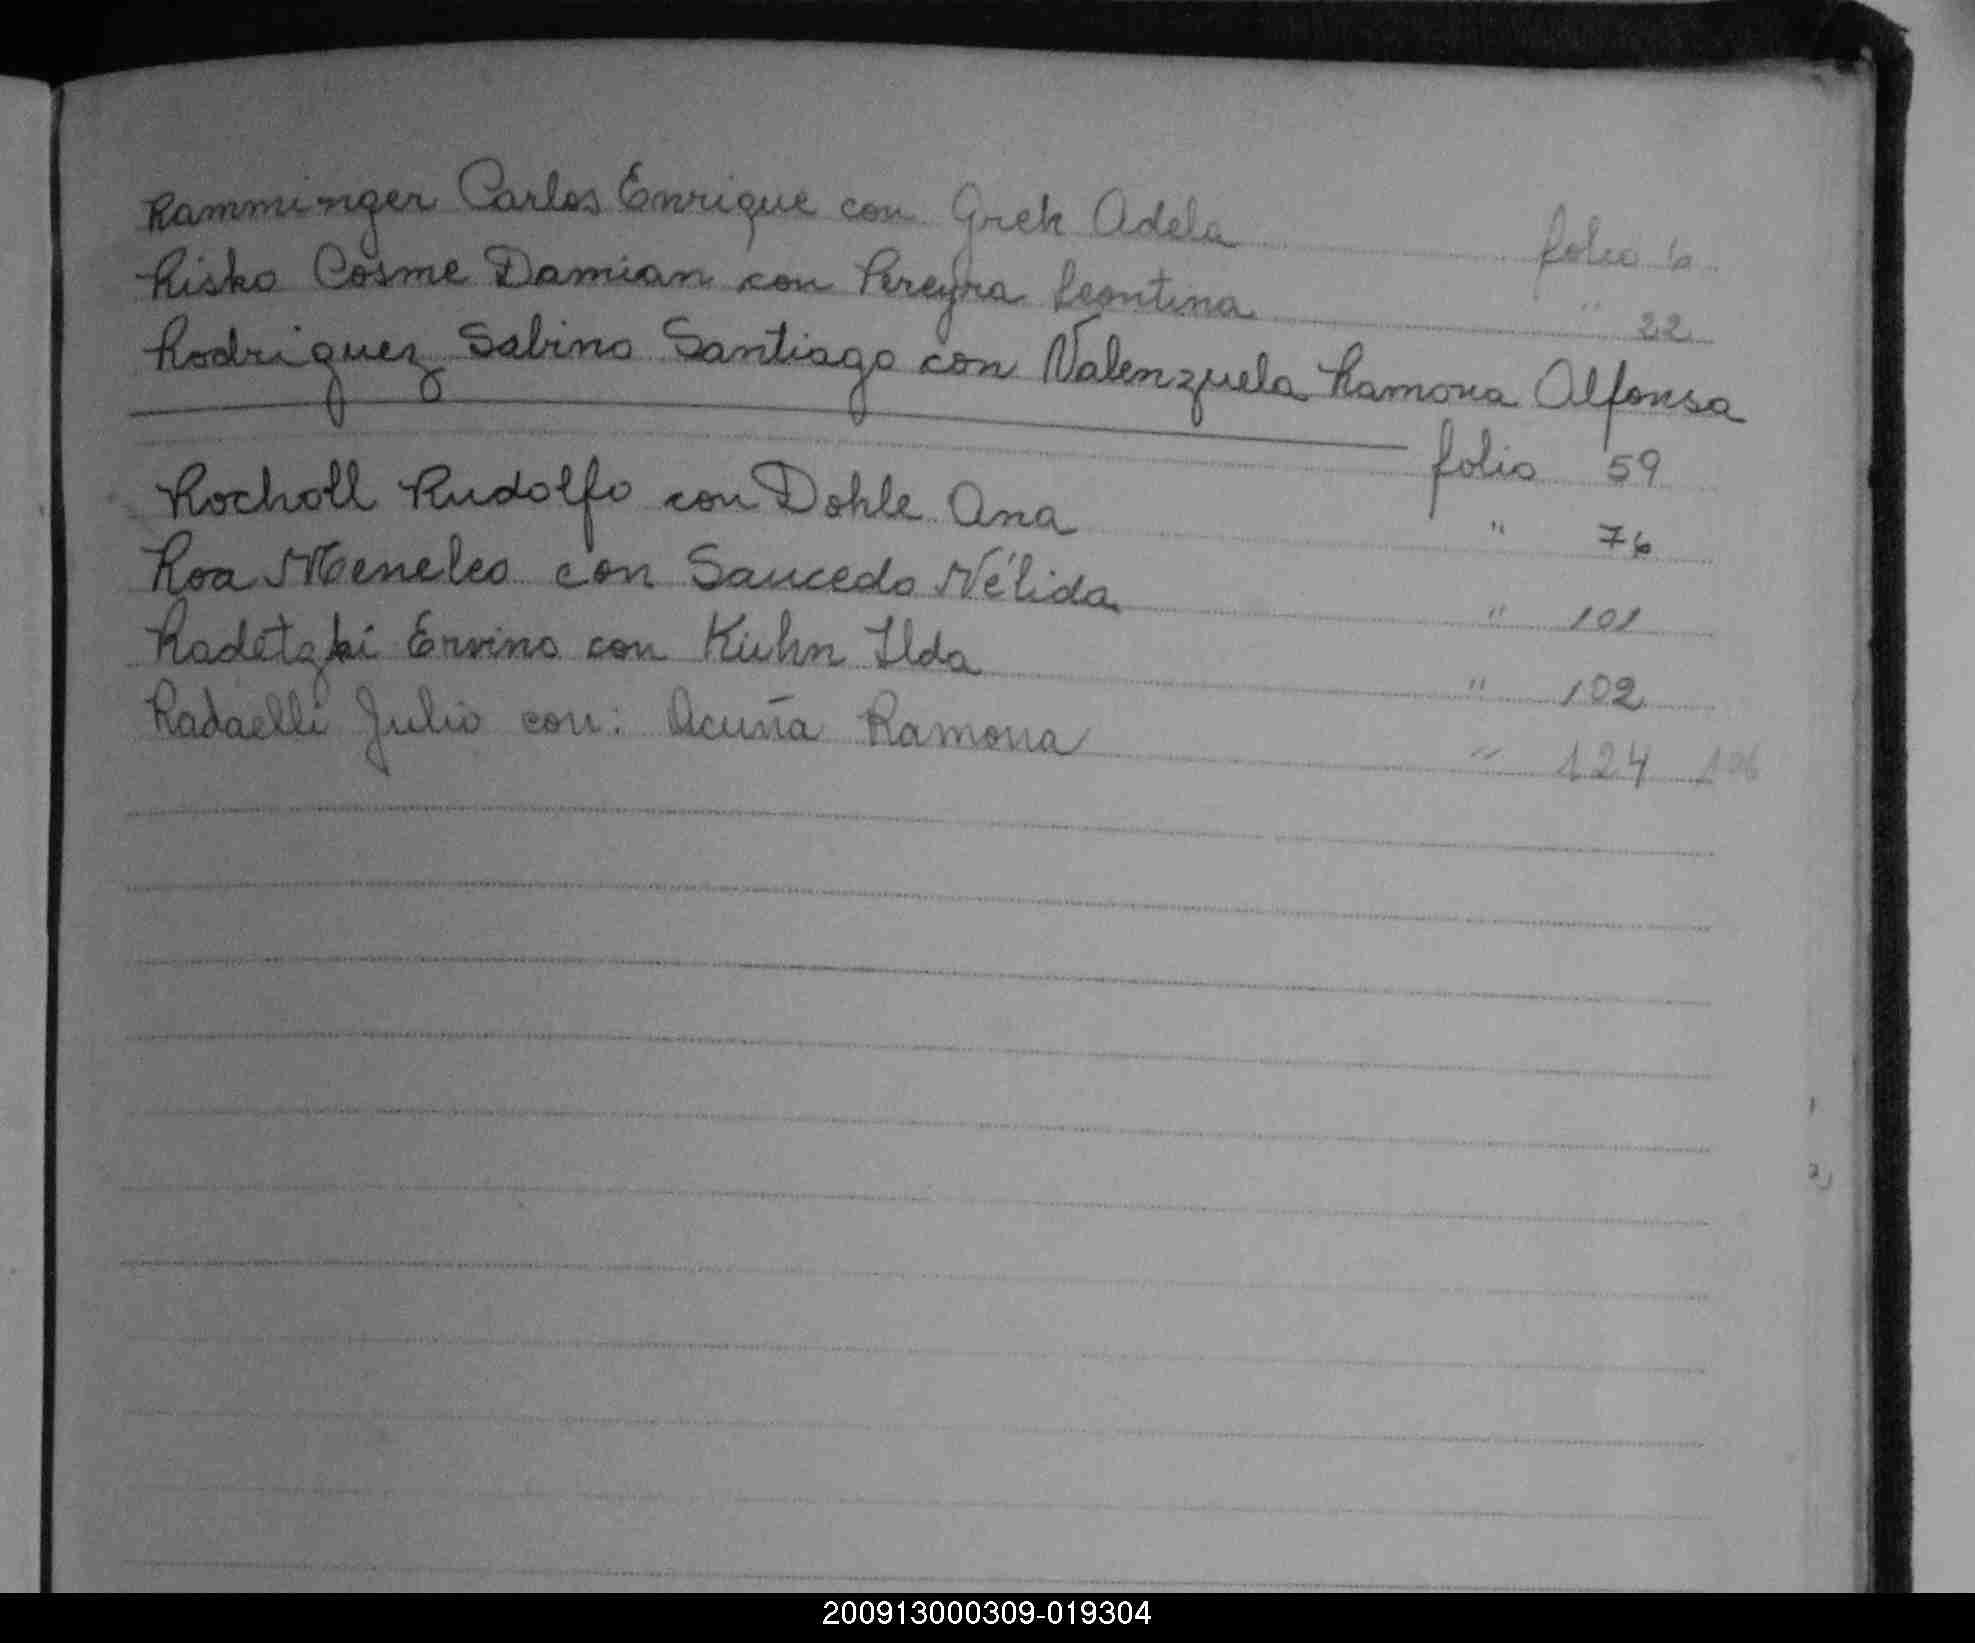 Ramminger Carlos Enrique con Grek Adela folio 6
Risko Cosme Damian con Pereyra Leontina " 22
Rodriguez Sabino Santiago con Valenzuela Ramona Alfonsa
folio 59
Rocholl Rudolfo con Dohle Ana " 76
Roa Meneleo con Saucedo Nélida " 101
Radetzki Ervino con Kuhn Ilda " 102
Radaelli Julio con: Acuña Ramona " 124
200913000309-019304